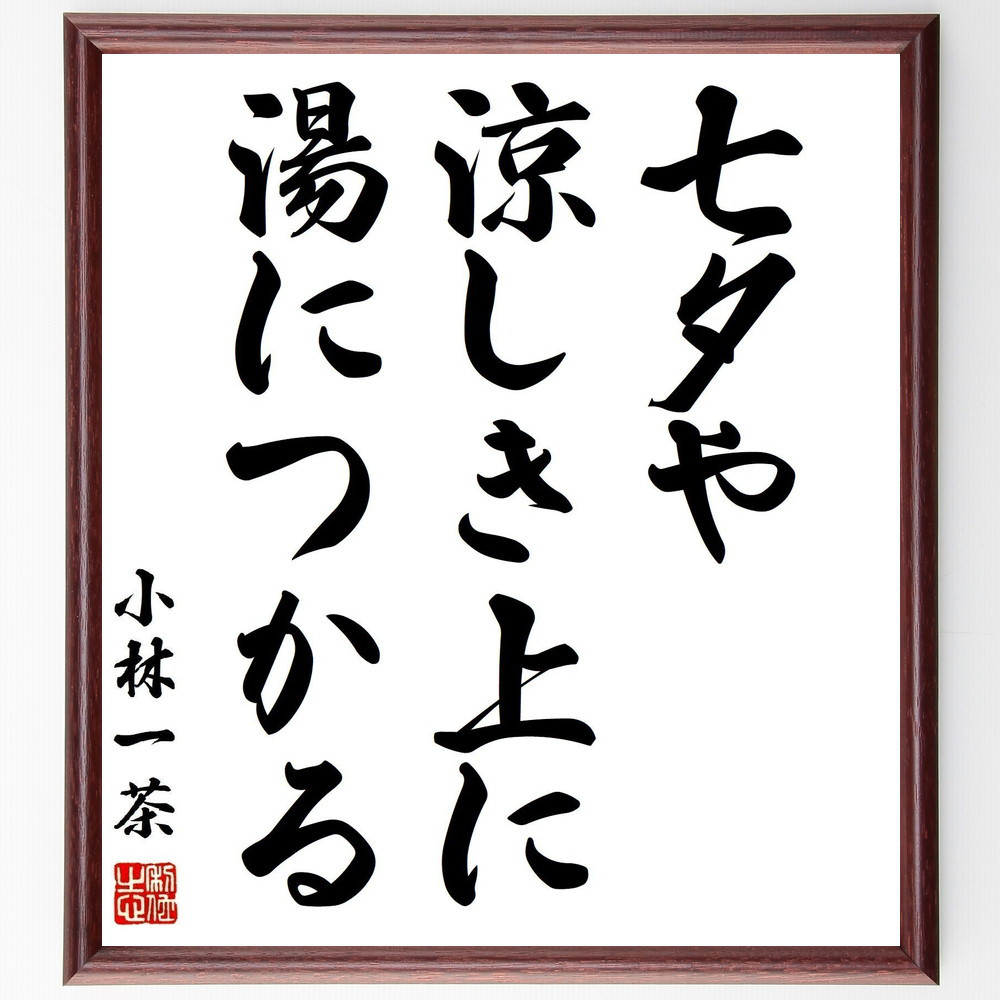 七夕や
涼しき上に
湯につかる
小林一茶